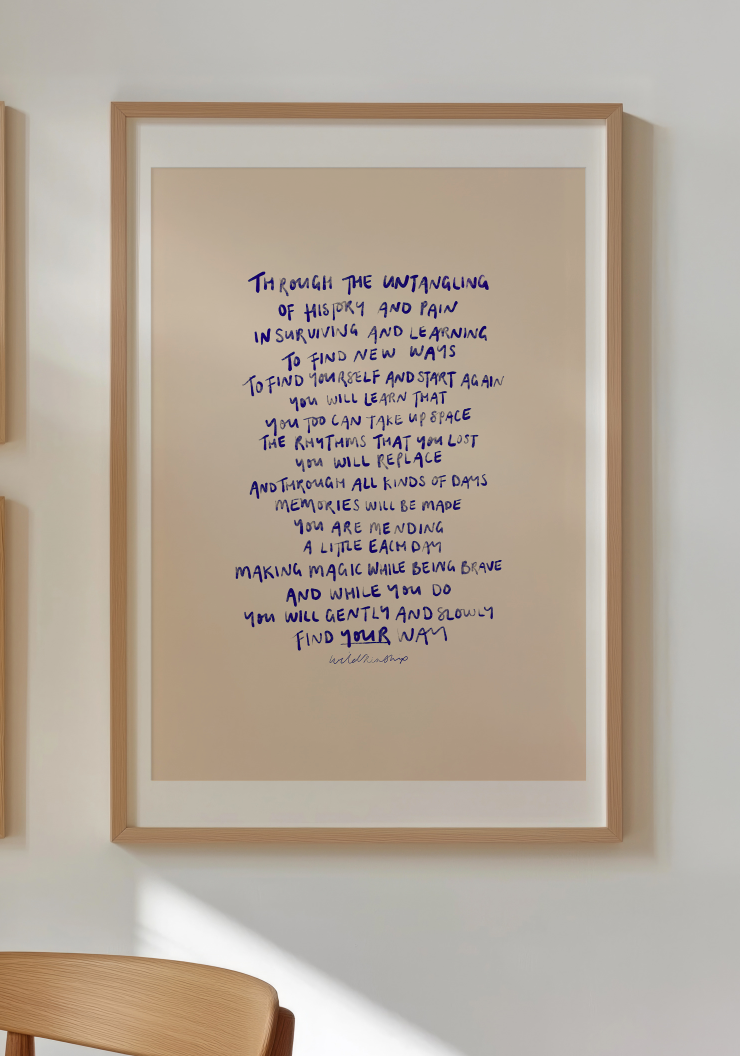 THROUGH THE UNTANGLING
OF HISTORY AND PAIN
IN SURVIVING AND LEARNING
TO FIND NEW WAYS
TO FIND YOURSELF AND START AGAIN
YOU WILL LEARN THAT
YOU TOO CAN TAKE UP SPACE
THE RHYTHMS THAT YOU LOST
YOU WILL REPLACE
AND THROUGH ALL KINDS OF DAYS
MEMORIES WILL BE MADE
YOU ARE MENDING
A LITTLE EACH DAY
MAKING MAGIC WHILE BEING BRAVE
AND WHILE YOU DO
YOU WILL GENTLY AND SLOWLY
FIND YOUR WAY